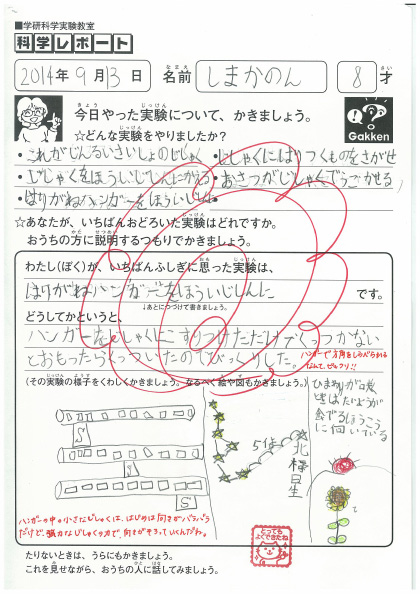 ■学研科学実験教室
科学レポート
2014年9月13日 名前 しまかのん 8才
今日やった実験について、かきましょう。
☆どんな実験をやりましたか?
Gakken
・これがじんるいさいしょのじしゃく ・じしゃくにはりつくものをさがせ
・じしゃくをほういじしんにかえる ・あさつがじしゃくでうごかせる
・はりがねハンガーをほういじしんに
☆あなたが、いちばんおどろいた実験はどれですか。
おうちの方に説明するつもりでかきましょう。
わたし(ぼく)が、いちばんふしぎに思った実験は、
はりがねハンガーをほういじしんに です。
↓あとにつづけて書きましょう。
どうしてかというと、
ハンガーをじしゃくにこすりつけただけでくっつかない
とおもったらくっついたのでびっくりした。
ハンガーで方角をしらべられる
なんて、ビックリ!!
(その実験の様子をくわしくかきましょう。なるべく絵や図もかきましょう。)
S
S
S
5倍
北極星
ハンガーの中の小さなじしゃくは、はじめは向きがバラバラ
だけど、強力なじしゃくの力で、向きがそろっていくんだね。
とっても
よくできたね
たりないときは、うらにもかきましょう。
これを見せながら、おうちの人に話してみましょう。